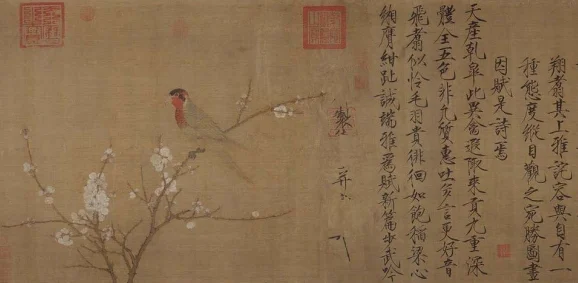 翔翥其上雅詫容與自有一
種態度縱目觀之宛勝圖畫
因賦是詩焉
天產乾皋此異禽遐陬來貢九重深
體全五色非凡質惠吐多言更好音
飛翥似怜毛羽貴徘徊如飽稻粱心
緗膺紺趾誠端雅為賦新篇步武吟
製
并書